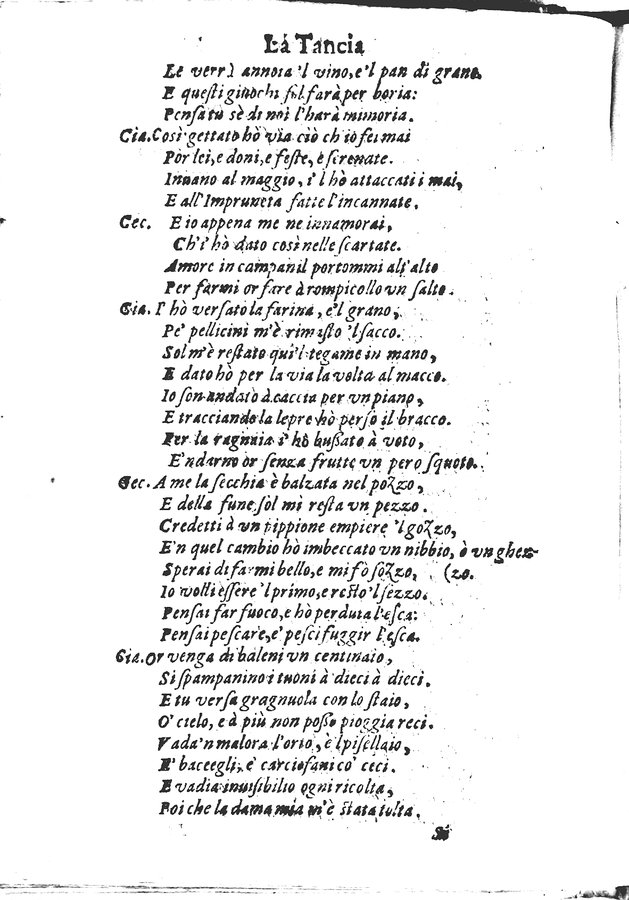 La Tancia
Le verrà annoia 'l vino, e'l pan di grano.
E questi giuochi sol farà per boria:
Pensa tù sè di noi l'harà mimoria.
Cia. Così gettato hò via ciò ch'io fei mai
Por lei, e doni, e feste, e serenate.
Inuano al maggio, i' l hò attaccati i mai,
E all'Impruneta fatte l'incannate.
Cec. E io appena me ne innamorai,
Ch'i' hò dato così nelle scartate.
Amore in campanil portommi all'alto
Per farmi or fare à rompicollo vn salto.
Cia. I' hò versato la farina, e'l grano,
Pe' pellicini m'è rimasto 'l sacco.
Sol m'è restato qui 'l tegame in mano,
E dato hò per la via la volta al macco.
Io son andato à caccia per vn piano,
E tracciando la lepre hò perso il bracco.
Per la ragnaia i' hò bussato à voto,
E'ndarno or senza frutte vn pero squoto.
Cec. A me la secchia è balzata nel pozzo,
E della fune sol mi resta vn pezzo.
Credetti à vn pippione empiere 'l gozzo,
E'n quel cambio hò imbeccato vn nibbio, ò vn ghez-
Sperai di farmi bello, e mi fò sozzo, (zo.
Io volli essere 'l primo, e resto 'l sezzo.
Pensai far fuoco, e hò perduta l'esca:
Pensai pescare, e' pesci fuggir l'esca.
Cia. Or venga di baleni vn centinaio,
Si spampanino i tuoni à dieci à dieci.
E tu versa gragnuola con lo staio,
O' cielo, e à più non posso pioggia reci.
Vada'n malora l'orto, è l pisellaio,
E' baccegli, e' carciofani co' ceci.
E vadia inuisibilio ogni ricolta,
Poi che la dama mia m'è stata tolta.